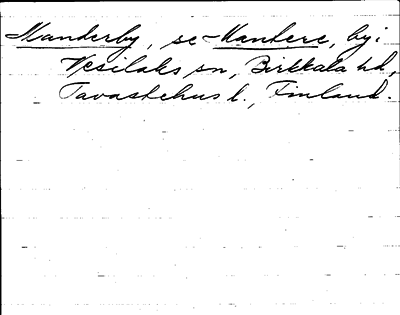 Manderby, se Mantere, by i
Vesilaks sn, Birkkala hd,
Tavastehus l., Finland.